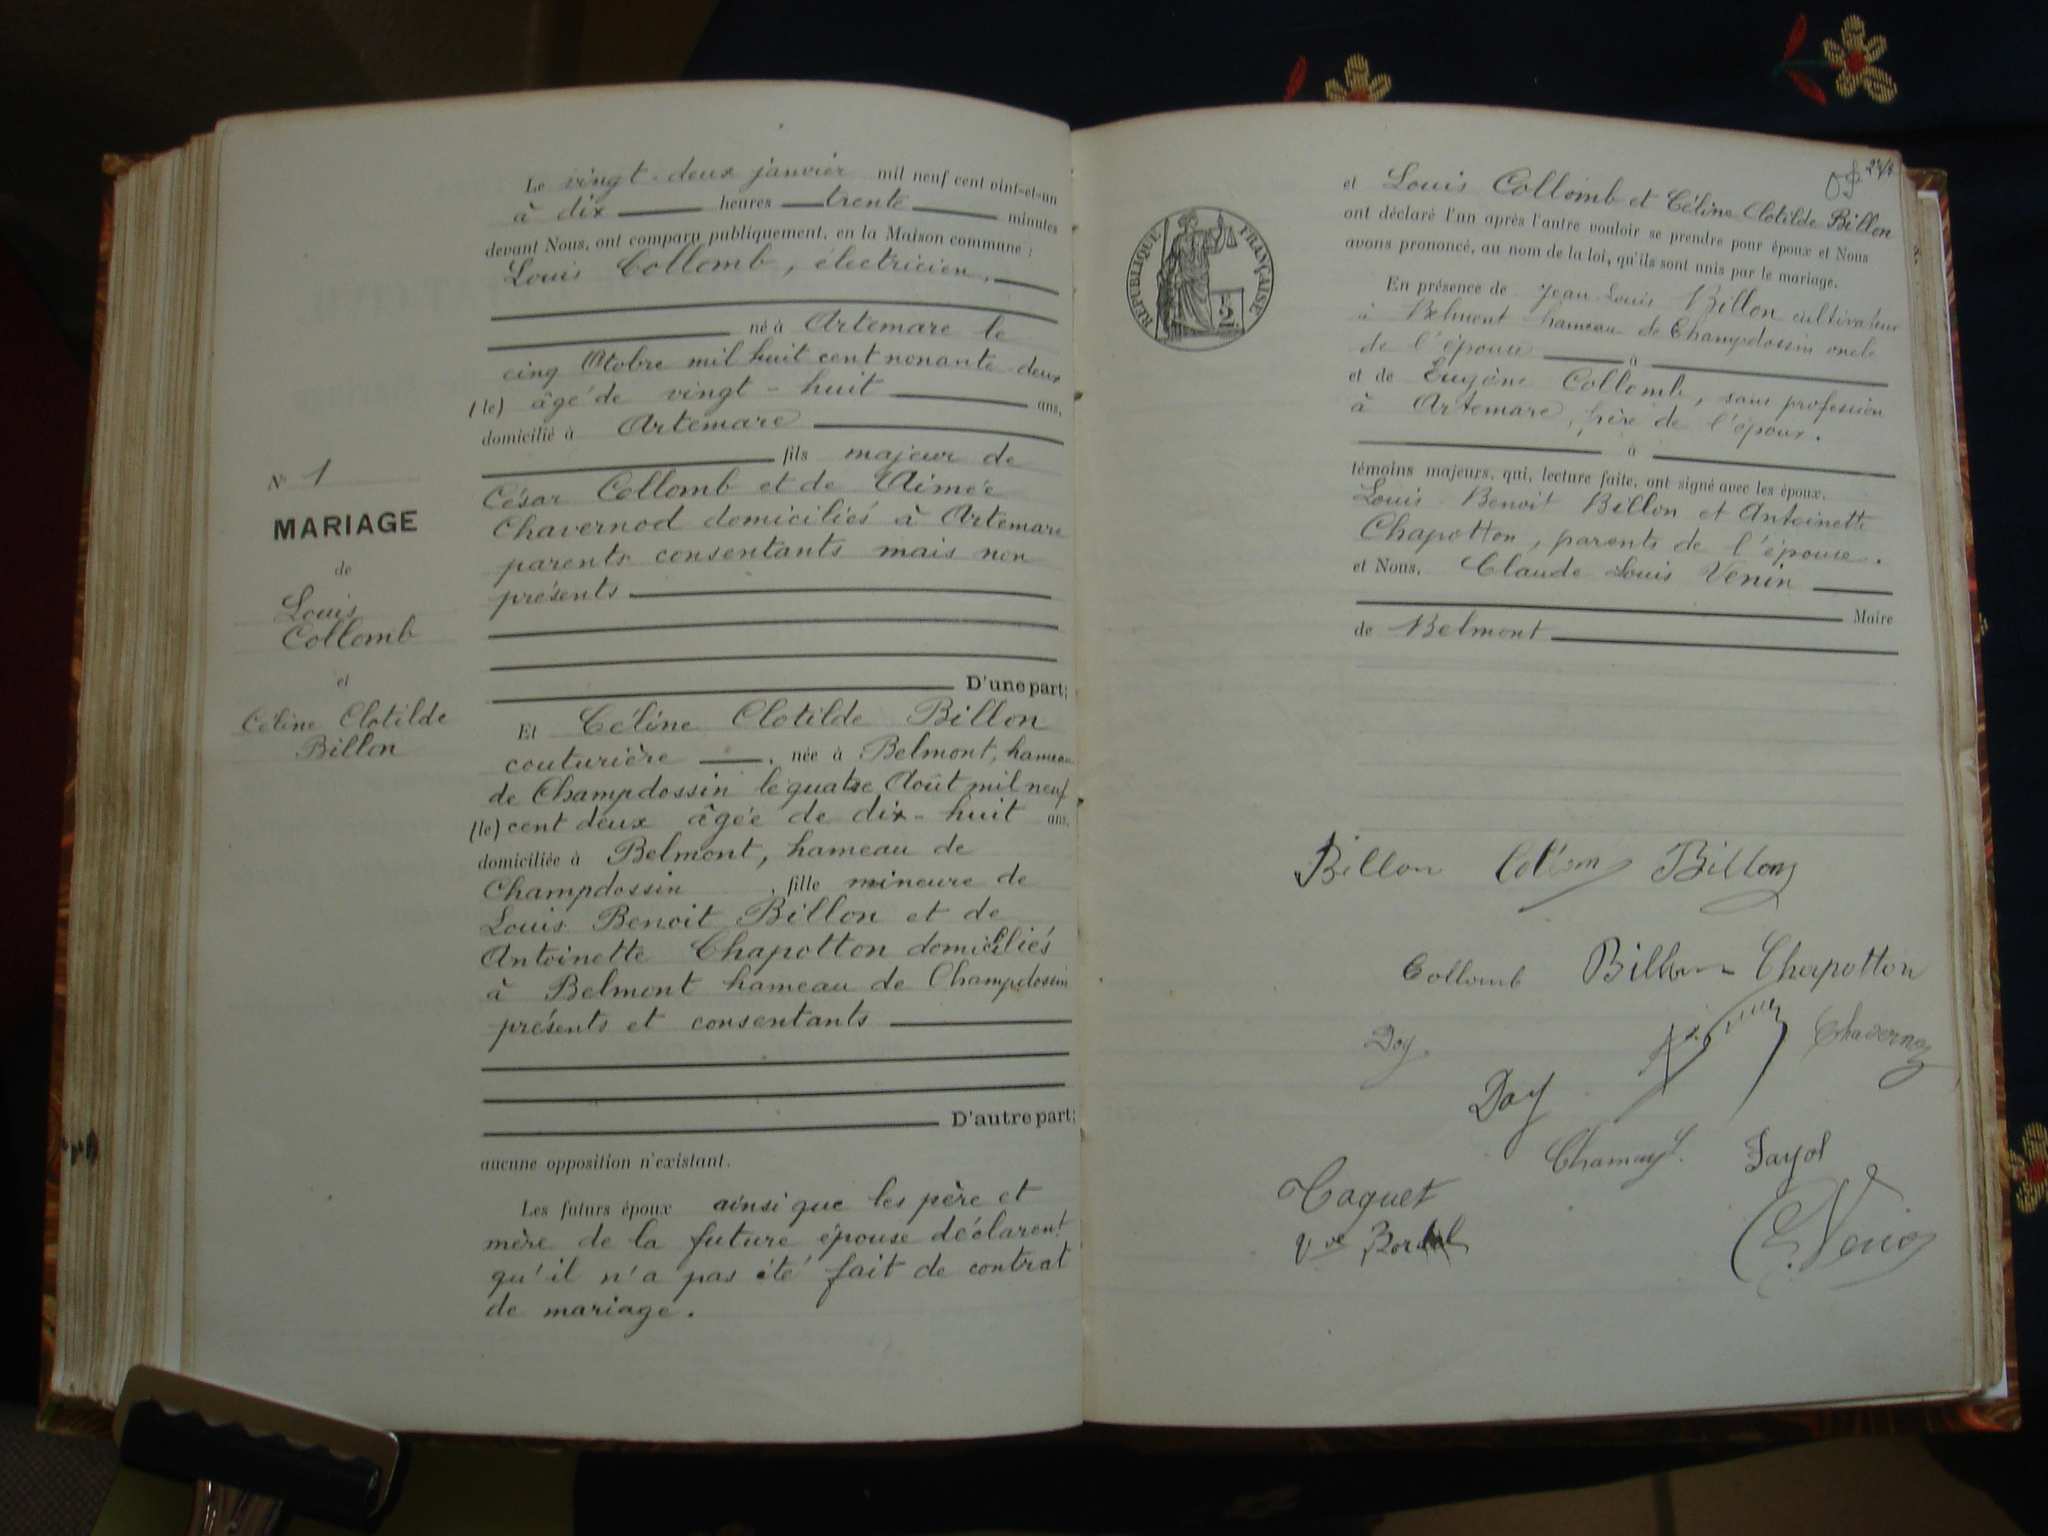 Le vingt-deux janvier mil neuf cent vint-et-un
à dix heures trente minutes
devant Nous, ont comparu publiquement, en la Maison commune :
Louis Collomb, électricien,
né à Artemare le
cinq Otobre mil huit cent nonante-deux
(le) âgé de vingt-huit ans,
domicilié à Artemare
fils majeur de
César Collomb et de Aimée
Chavernod domiciliés à Artemare
parents consentants mais non
présents
D'une part;
N° 1
MARIAGE
de
Louis
Collomb
et
Céline Clotilde
Billon
Et Céline Clotilde Billon
couturière, née à Belmont, hameau
de Champdossin le quatre Août mil neuf
(le) cent deux âgée de dix-huit ans,
domiciliée à Belmont, hameau de
Champdossin, fille mineure de
Louis Benoit Billon et de
Antoinette Chapotton domiciliés
à Belmont hameau de Champdossin
présents et consentants
D'autre part;
aucune opposition n'existant.
Les futurs époux ainsi que les père et
mère de la future épouse déclarent
qu'il n'a pas été fait de contrat
de mariage.
RÉPUBLIQUE FRANÇAISE
et Louis Collomb et Céline Clotilde Billon
ont déclaré l'un après l'autre vouloir se prendre pour époux et Nous
avons prononcé, au nom de la loi, qu'ils sont unis par le mariage.
En présence de Jean-Louis Billon cultivateur
à Belmont hameau de Champdossin oncle
de l'épouse à
et de Eugène Collomb, sans profession
à Artemare, père de l'époux.
à
témoins majeurs, qui, lecture faite, ont signé avec les époux.
Louis Benoit Billon et Antoinette
Chapotton, parents de l'épouse.
et Nous, Claude Louis Venin
Maire
de Belmont
Billon Billon
Collomb Billon Chapotton
Doy
Doy
Chamay Fayol
Taguet
Vve
C. Venin